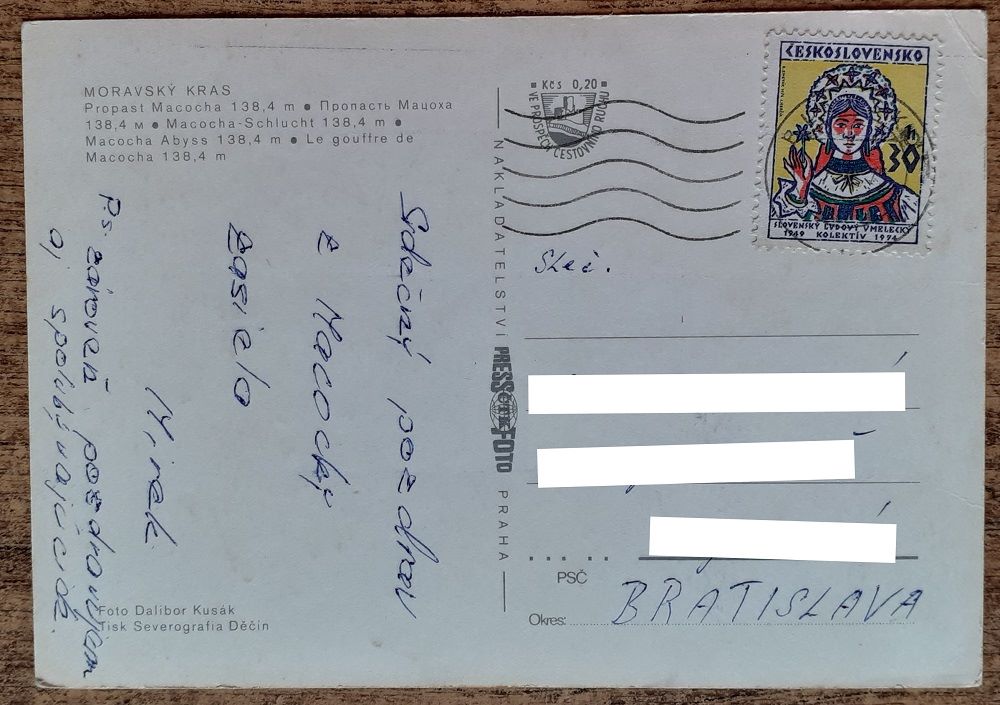 MORAVSKÝ KRAS
Propast Macocha 138,4 m ● Пропасть Мацоха
138,4 м ● Macocha-Schlucht 138,4 m ●
Macocha Abyss 138,4 m ● Le gouffre de
Macocha 138,4 m
Srdečný pozdrav
z Macochy
Mirek
P.s. zároveň pozdravujem
aj spolubývajúcich.
Foto Dalibor Kusák
Tisk Severografia Děčín
NAKLADATELSTVÍ PRESSFOTO PRAHA
Kčs 0,20
VE PROSPĚCH CESTOVNÍHO RUCHU
ČESKOSLOVENSKO
30
SLOVENSKÝ ĽUDOVÝ UMELECKÝ
1949 KOLEKTÍV 1974
Sleč.
PSČ
Okres: BRATISLAVA